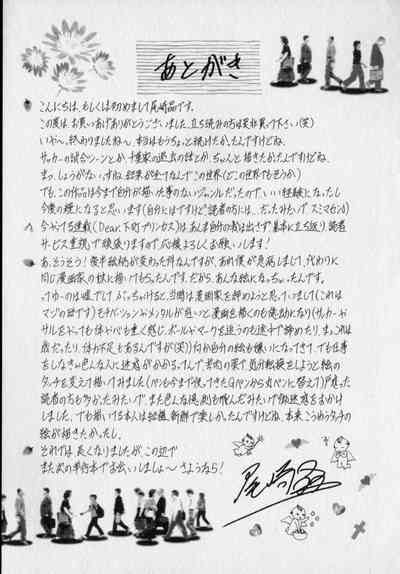 あとがき
こんにちは、もしくは初めまして尾崎晶です。
この度は、お買いあげありがとうございました、立ち読みの方は是非買って下さい(笑)
いや〜、終わりましたね〜、本当はもうちょっと続けたかったんですけどね、
サッカーの試合シーンとか、千葉家の過去の話とか、ちゃんと描きたかったんですけどね、
まっ、しょうがないっすね、結果が全てなんでこの世界(どこの世界でも色か)
でも、この作品は今まで自分が描いた事のないジャンルだったので、いい経験になったし
今後の糧になると思います(自分にはですけど読者の方には、だったみたいで スミマセン)
今やってる連載(Dear.下町プリンセス)は、あんま自分の我は出さず 基本に立ち返り、読者
サービス重視で頑張りますので応援よろしくお願いします!
あ、そうそう!後半絵柄が変わった件なんですが、あれ僕が急病しまして、代わりに
同じ漫画家の妹に描いてもらったんです、だから、あんな絵になっちゃったんです、
ってゆーのは嘘でして ぶっちゃけると、当時は漫画家を辞めようと思っていまして(これは
マジの話です) モチベーションとメンタルが低いと漫画を描くのも億劫になり(サッカーか
サルをやっても体が心も重く感じ、ボールがマークを追うのも途中で諦めたり、まっこれは
歳だったり、体力不足もあるんですが(笑)) 何か自分の絵も嫌いになってきて、でも仕事
をしなきゃ色んな人に迷惑がかかるって、んで苦肉の策で気分転換をしようと絵の
タッチを変えて描いてみました(ペンも今まで使ってきたGペンから丸ペンに替えて)戸惑った
読者の方も多かったみたいで、また色んな憶測も飛んだみたいで御迷惑をおかけ
しました、でも描いてる本人は結構、新鮮で楽しかったんですけどね、本来こうゆうタッチの
絵が描きたかったし、
それでは 長くなりましたが、この辺で
また次の単行本でお会いしましょ〜 さようなら!
尾崎晶